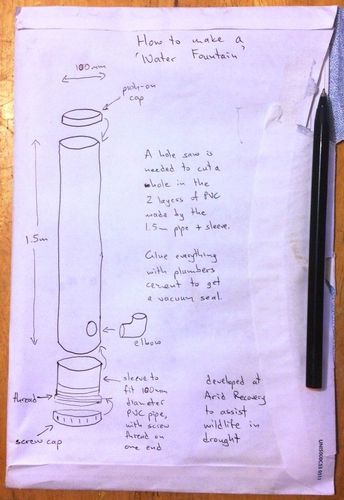 How to make a
'Water Fountain'
100mm
push-on
cap
A hole saw is
needed to cut a
hole in the
2 layers of PVC
made by the
1.5m pipe + sleeve.
1.5m
Glue everything
with plumbers
cement to get
a vacuum seal.
elbow
thread
screw cap
sleeve to
fit 100mm
diameter
PVC pipe,
with screw
thread on
one end
developed at
Arid Recovery
to assist
wildlife in
drought